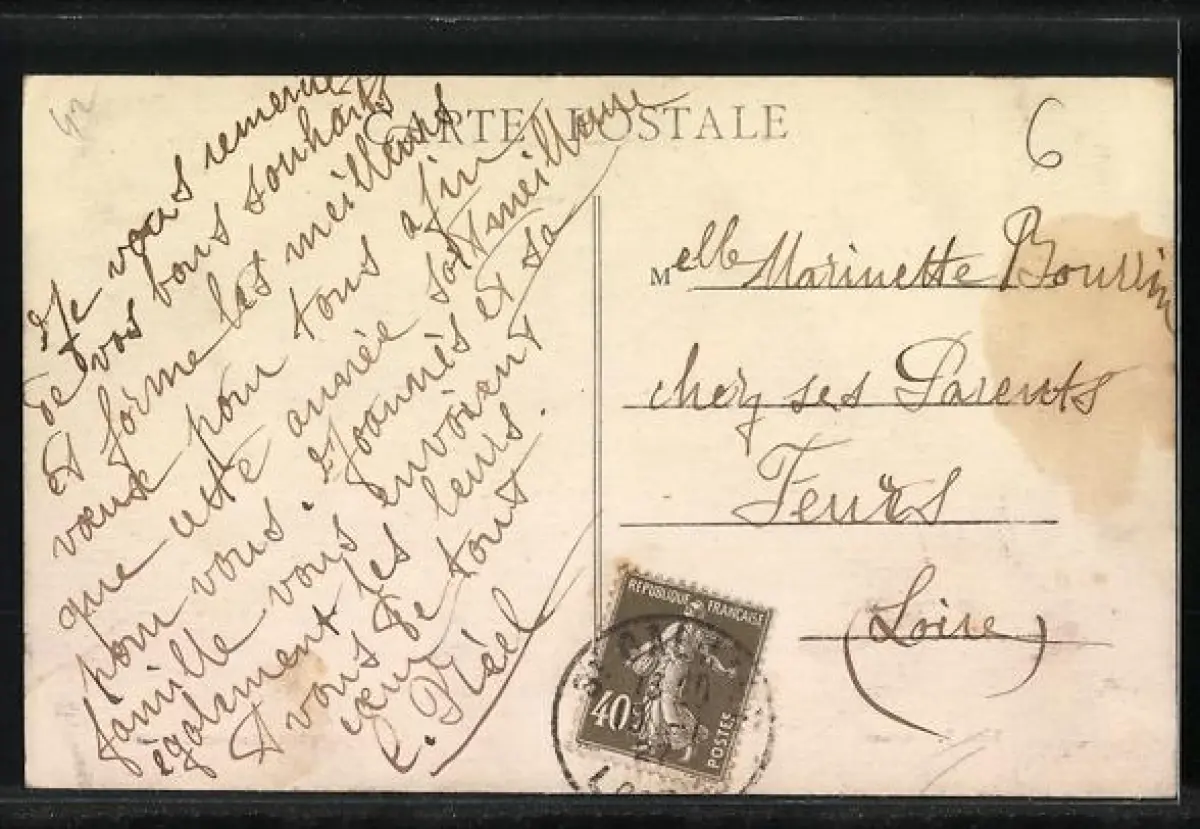 42
CARTE POSTALE
6
Je vous remercie
de vos bons souhaits
et forme les meilleurs
vœux pour tous afin
que cette année soit meilleure
pour vous. Joannès et sa
famille vous envoient
également les leurs.
A vous de tout
cœur
Melle Marinette Bourrin
chez ses Parents
Feurs
Loire
REPUBLIQUE FRANÇAISE
40c
POSTES